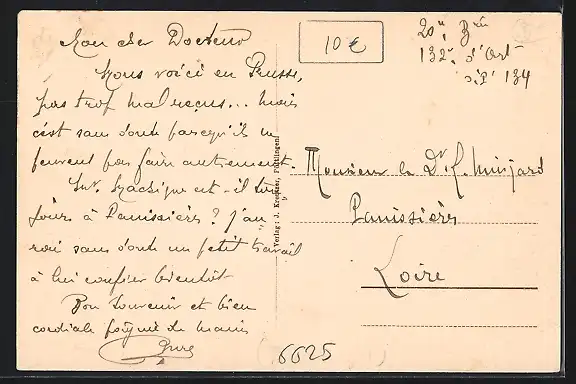 Mon cher Docteur
Nous voici en Prusse,
pas trop mal reçus... mais
c'est sans doute parcequ'ils ne
peuvent pas faire autrement.
est-il tou
jours à Panissières? J'au
rai sans doute un petit travail
à lui confier bientôt
Bon souvenir et bien
cordiale poignée de mains
10 €
20e
132e d'Art
s.p. 134
Verlag: J. Kreutzer, Püttlingen
Monsieur le Dr
Panissières
Loire
6625